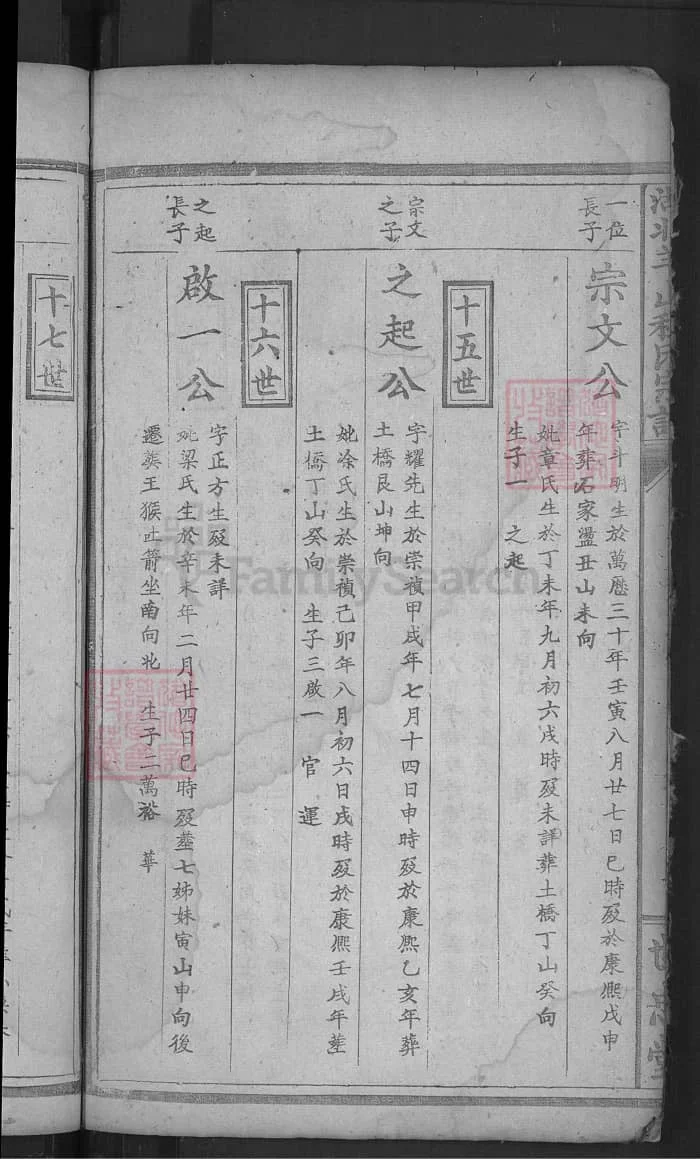 一位
長子
宗文公
字斗明生於萬歷三十年壬寅八月廿七日巳時歿於康熙戊申
年葬石家盪丑山未向
妣章氏生於丁未年九月初六戌時歿未詳葬土橋丁山癸向
生子一 之起
十五世
宗文
之子
之起公
字耀先生於崇禎甲戌年七月十四日申時歿於康熙乙亥年葬
土橋艮山坤向
妣涂氏生於崇禎己卯年八月初六日戌時歿於康熙壬戌年塟
土橋丁山癸向 生子三啟一 官 運
十六世
之起
長子
啟一公
字正方生歿未詳
妣梁氏生於辛未年二月廿四日巳時歿塟七姊妹寅山申向後
遷葵王猴止箭坐南向北 生子二萬裕 華
十七世
FamilySearch